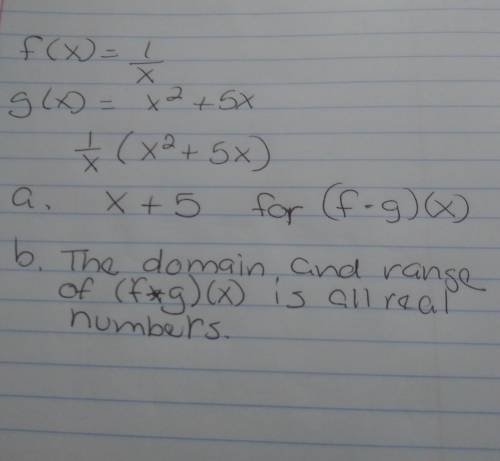 f(x) = 1/x
g(x) = x² + 5x
1/x (x² + 5x)
a. x + 5 for (f · g)(x)
b. The domain and range
of (f*g)(x) is all real
numbers.